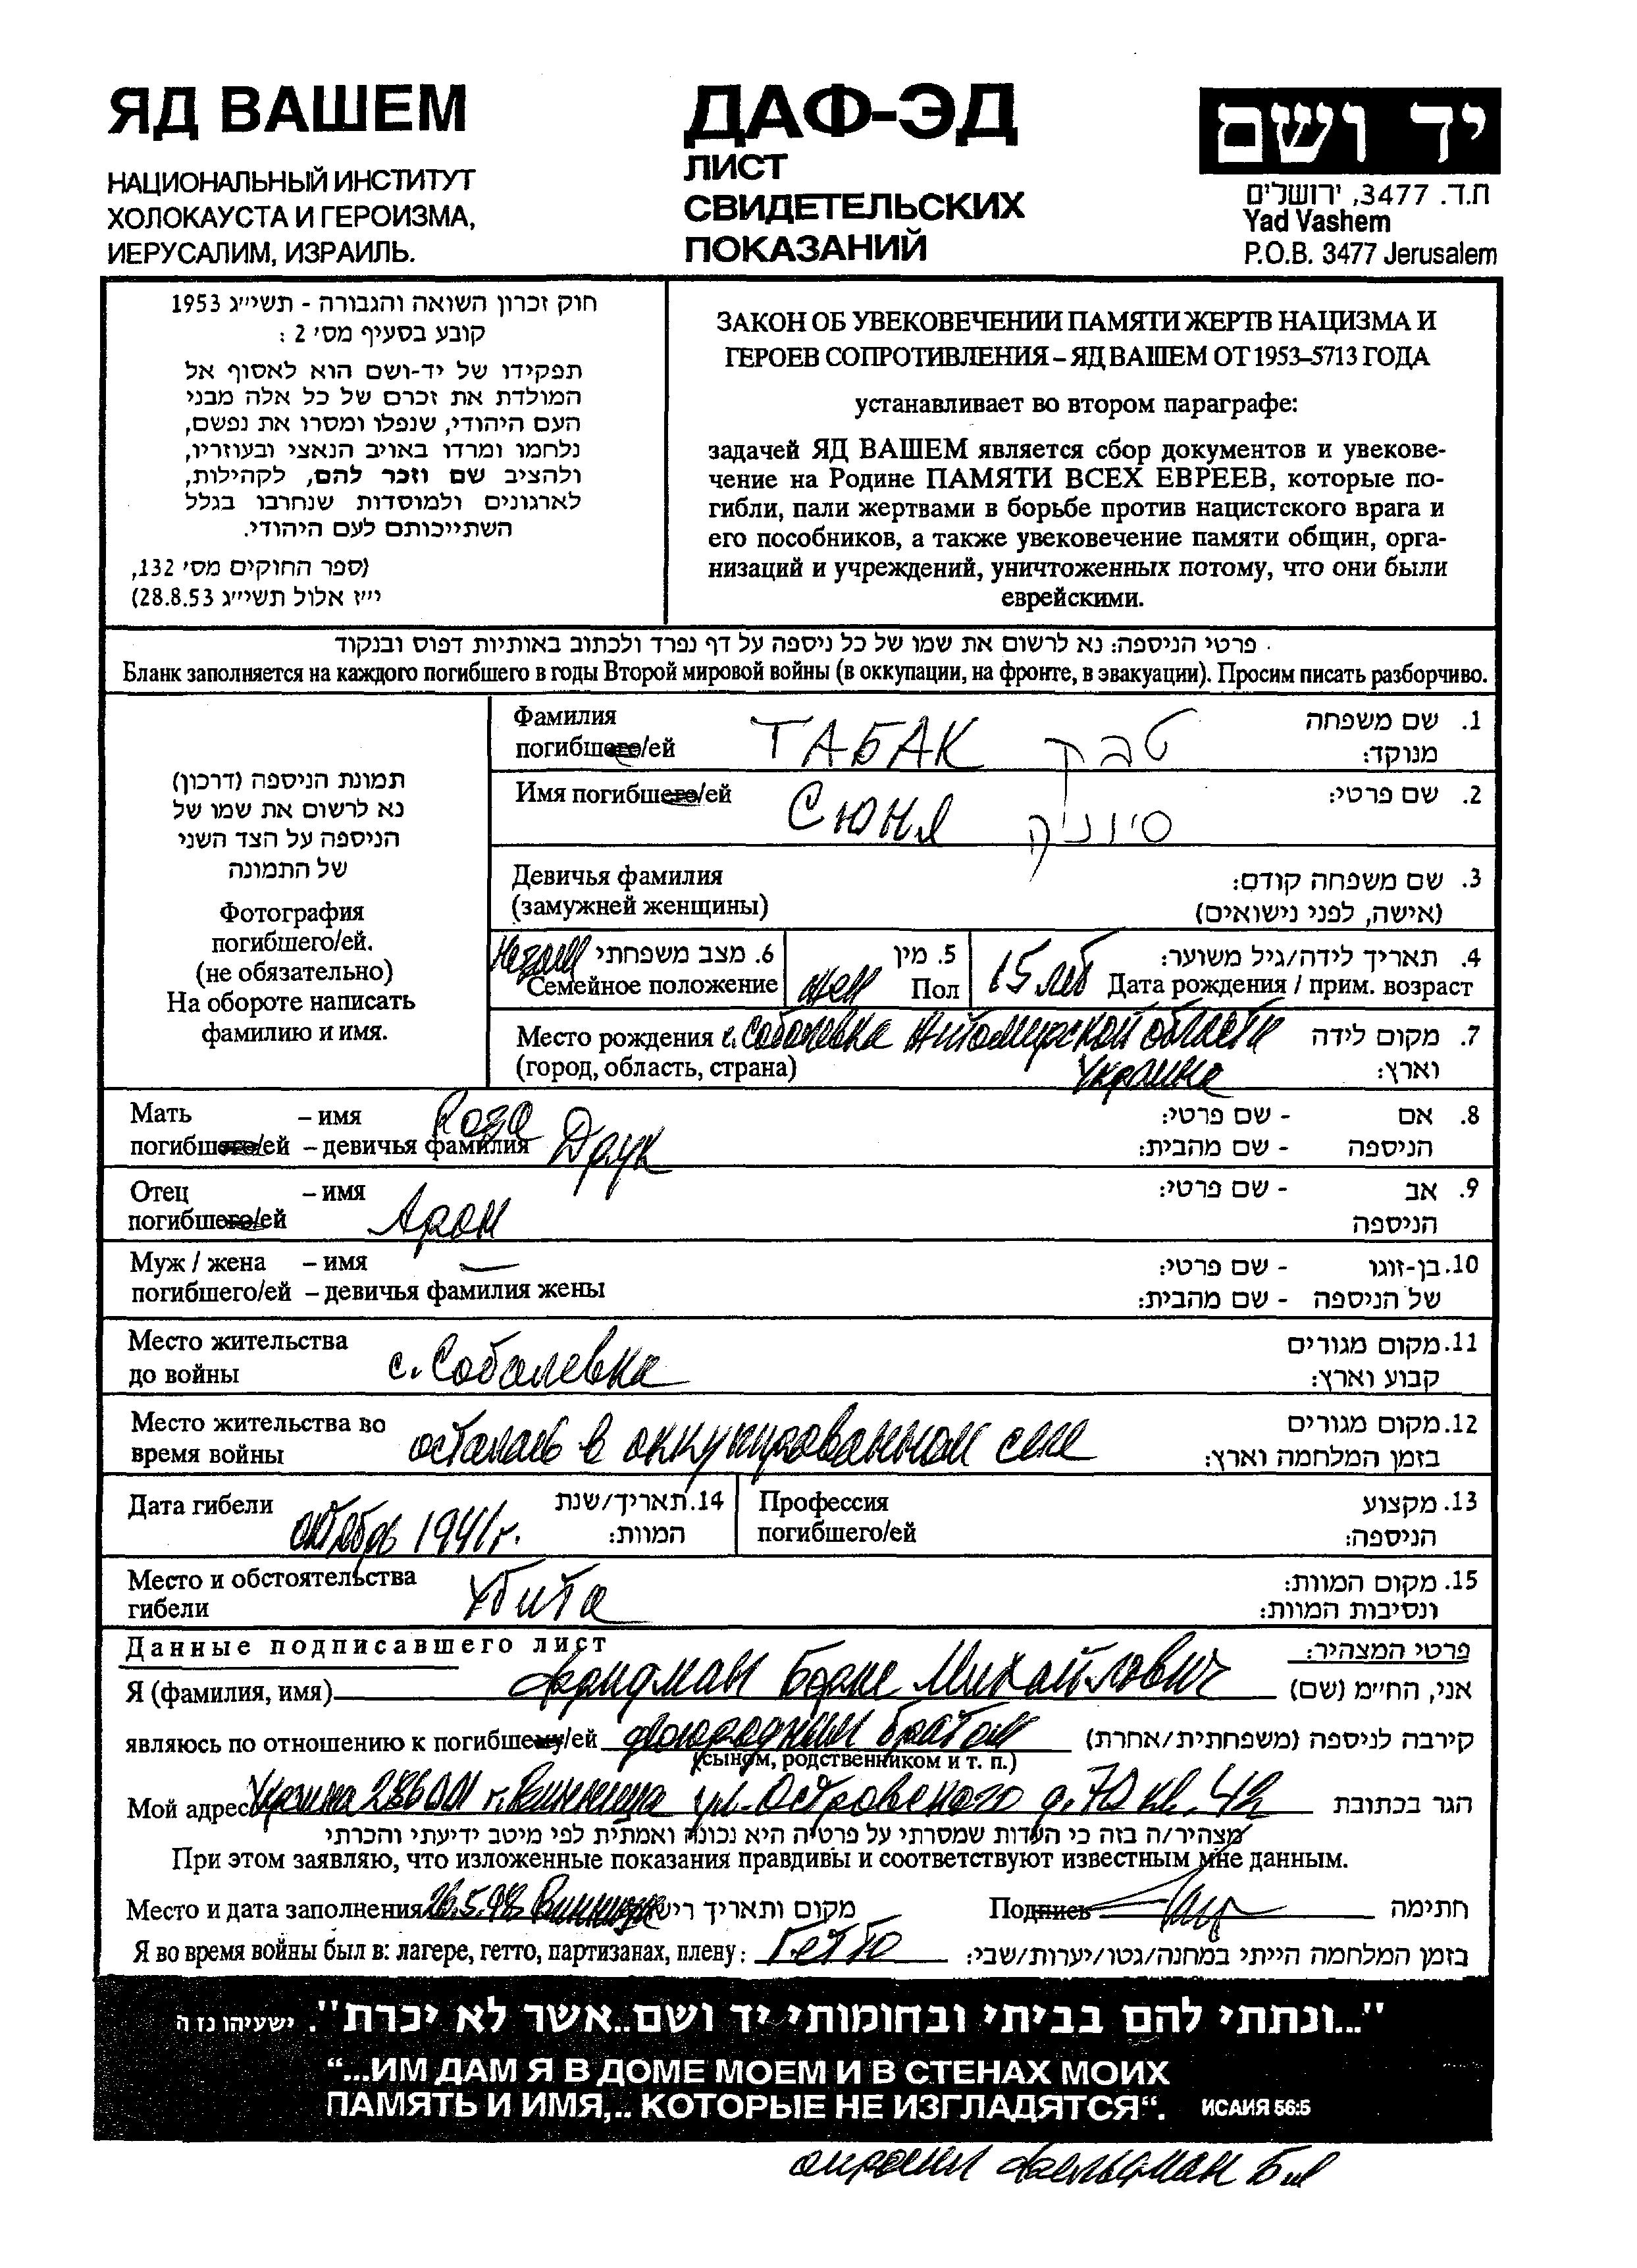 ЯД ВАШЕМ
НАЦИОНАЛЬНЫЙ ИНСТИТУТ
ХОЛОКАУСТА И ГЕРОИЗМА,
ИЕРУСАЛИМ, ИЗРАИЛЬ.
ДАФ-ЭД
ЛИСТ
СВИДЕТЕЛЬСКИХ
ПОКАЗАНИЙ
יד ושם
ת.ד. 3477, ירושלים
Yad Vashem
P.O.B. 3477 Jerusalem
חוק זכרון השואה והגבורה - תשי״ג 1953
קובע בסעיף מס׳ 2 :
תפקידו של יד-ושם הוא לאסוף אל
המולדת את זכרם של כל אלה מבני
העם היהודי, שנפלו ומסרו את נפשם,
נלחמו ומרדו באויב הנאצי ובעוזריו,
ולהציב שם וזכר להם, לקהילות,
לארגונים ולמוסדות שנחרבו בגלל
השתייכותם לעם היהודי.
(ספר החוקים מס׳ 132,
י״ז אלול תשי״ג 28.8.53)
ЗАКОН ОБ УВЕКОВЕЧЕНИИ ПАМЯТИ ЖЕРТВ НАЦИЗМА И
ГЕРОЕВ СОПРОТИВЛЕНИЯ – ЯД ВАШЕМ ОТ 1953–5713 ГОДА
устанавливает во втором параграфе:
задачей ЯД ВАШЕМ является сбор документов и увекове-
чение на Родине ПАМЯТИ ВСЕХ ЕВРЕЕВ, которые по-
гибли, пали жертвами в борьбе против нацистского врага и
его пособников, а также увековечение памяти общин, орга-
низаций и учреждений, уничтоженных потому, что они были
еврейскими.
פרטי הניספה: נא לרשום את שמו של כל ניספה על דף נפרד ולכתוב באותיות דפוס ובנקוד
Бланк заполняется на каждого погибшего в годы Второй мировой войны (в оккупации, на фронте, в эвакуации). Просим писать разборчиво.
תמונת הניספה (דרכון)
נא לרשום את שמו של
הניספה על הצד השני
של התמונה
Фотография
погибшего/ей.
(не обязательно)
На обороте написать
фамилию и имя.
Фамилия
погибшего/ей ТАБАК טבק
1. שם משפחה
מנוקד:
Имя погибшего/ей Сюня סיוניק 2. שם פרטי:
Девичья фамилия
(замужней женщины)
3. שם משפחה קודם:
(אישה, לפני נישואים)
6. מצב משפחתי
Семейное положение
5. מין
жен Пол
4. תאריך לידה/גיל משוער:
15 лет Дата рождения / прим. возраст
Место рождения с. Соболевка Житомирской области
(город, область, страна) Украина
7. מקום לידה
וארץ:
Мать – имя Роза
погибшего/ей – девичья фамилия Друк
8. אם - שם פרטי:
הניספה - שם מהבית:
Отец – имя
погибшего/ей Арон
9. אב - שם פרטי:
הניספה
Муж / жена – имя —
погибшего/ей – девичья фамилия жены
10. בן-זוגו - שם פרטי:
של הניספה - שם מהבית:
Место жительства
до войны с. Соболевка
11. מקום מגורים
קבוע וארץ:
Место жительства во
время войны осталась в оккупированном селе
12. מקום מגורים
בזמן המלחמה וארץ:
Дата гибели октябрь 1941г.
14. תאריך/שנת
המוות:
Профессия
погибшего/ей
13. מקצוע
הניספה:
Место и обстоятельства
гибели Убита
15. מקום המוות:
ונסיבות המוות:
Данные подписавшего лист פרטי המצהיר:
Я (фамилия, имя) Фридман Борис Михайлович אני, הח״מ (שם)
являюсь по отношению к погибшему/ей двоюродным братом קירבה לניספה (משפחתית/אחרת)
(сыном, родственником и т. п.)
Мой адрес Украина 286001 г. Винница ул. Островского הגר בכתובת
מצהיר/ה בזה כי העדות שמסרתי על פרטיה היא נכונה ואמתית לפי מיטב ידיעתי והכרתי
При этом заявляю, что изложенные показания правдивы и соответствуют известным мне данным.
Место и дата заполнения 26.5.98 Винница מקום ותאריך Подпись חתימה
Я во время войны был в: лагере, гетто, партизанах, плену: Гетто בזמן המלחמה הייתי במחנה/גטו/יערות/שבי:
"...ונתתי להם בביתי ובחומותי יד ושם..אשר לא יכרת". ישעיהו נז ה
“...ИМ ДАМ Я В ДОМЕ МОЕМ И В СТЕНАХ МОИХ
ПАМЯТЬ И ИМЯ,.. КОТОРЫЕ НЕ ИЗГЛАДЯТСЯ“. ИСАИЯ 56:5
опросил Фельдман